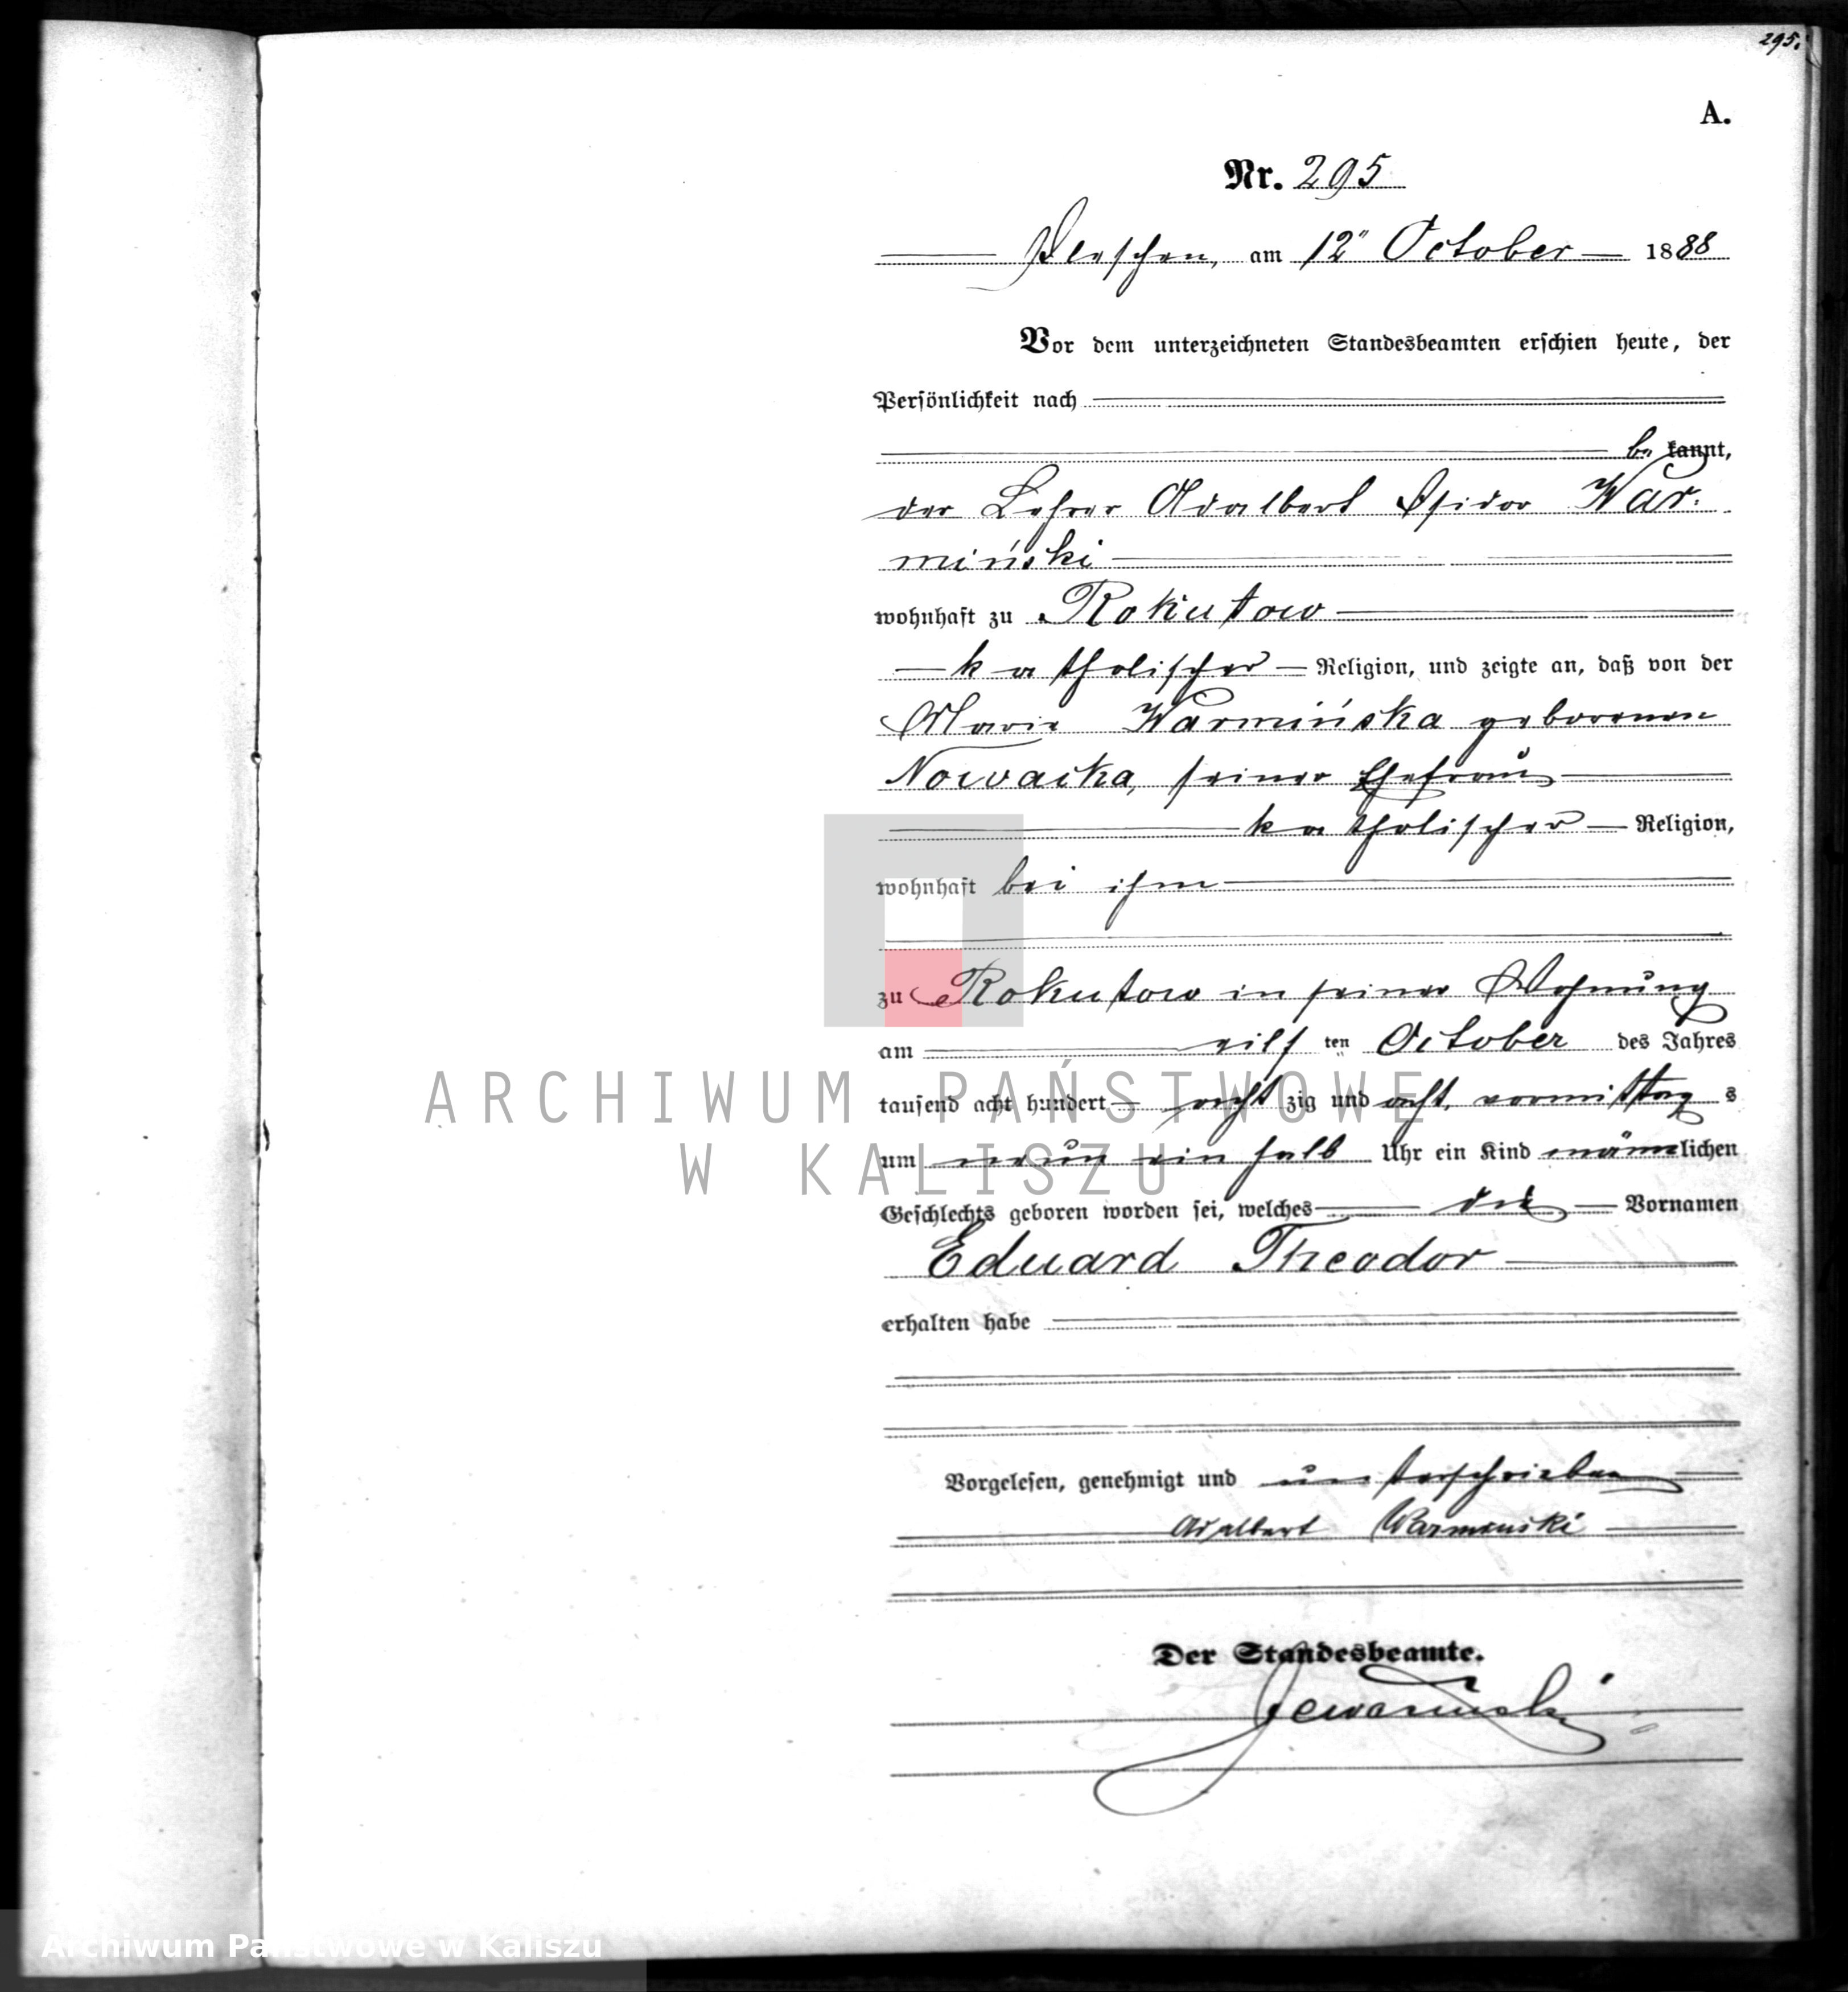 295.
A.
Nr. 295
Pleschen, am 12" October 1888
Vor dem unterzeichneten Standesbeamten erschien heute, der
Persönlichkeit nach
bekannt,
der Lehrer Adalbert Isidor War-
miński
wohnhaft zu Rokutow
katholischer Religion, und zeigte an, daß von der
Maria Warmińska geborenen
Nowacka, seiner Ehefrau
katholischer Religion,
wohnhaft bei ihm
zu Rokutow in seiner Wohnung
am eilf ten October des Jahres
tausend acht hundert acht zig und acht, vormittag s
um neun ein halb Uhr ein Kind männlichen
Geschlechts geboren worden sei, welches die Vornamen
Eduard Theodor
erhalten habe
Vorgelesen, genehmigt und unterschrieben
Adalbert Warminski
Der Standesbeamte.
ARCHIWUM PAŃSTWOWE
W KALISZU
Archiwum Państwowe w Kaliszu